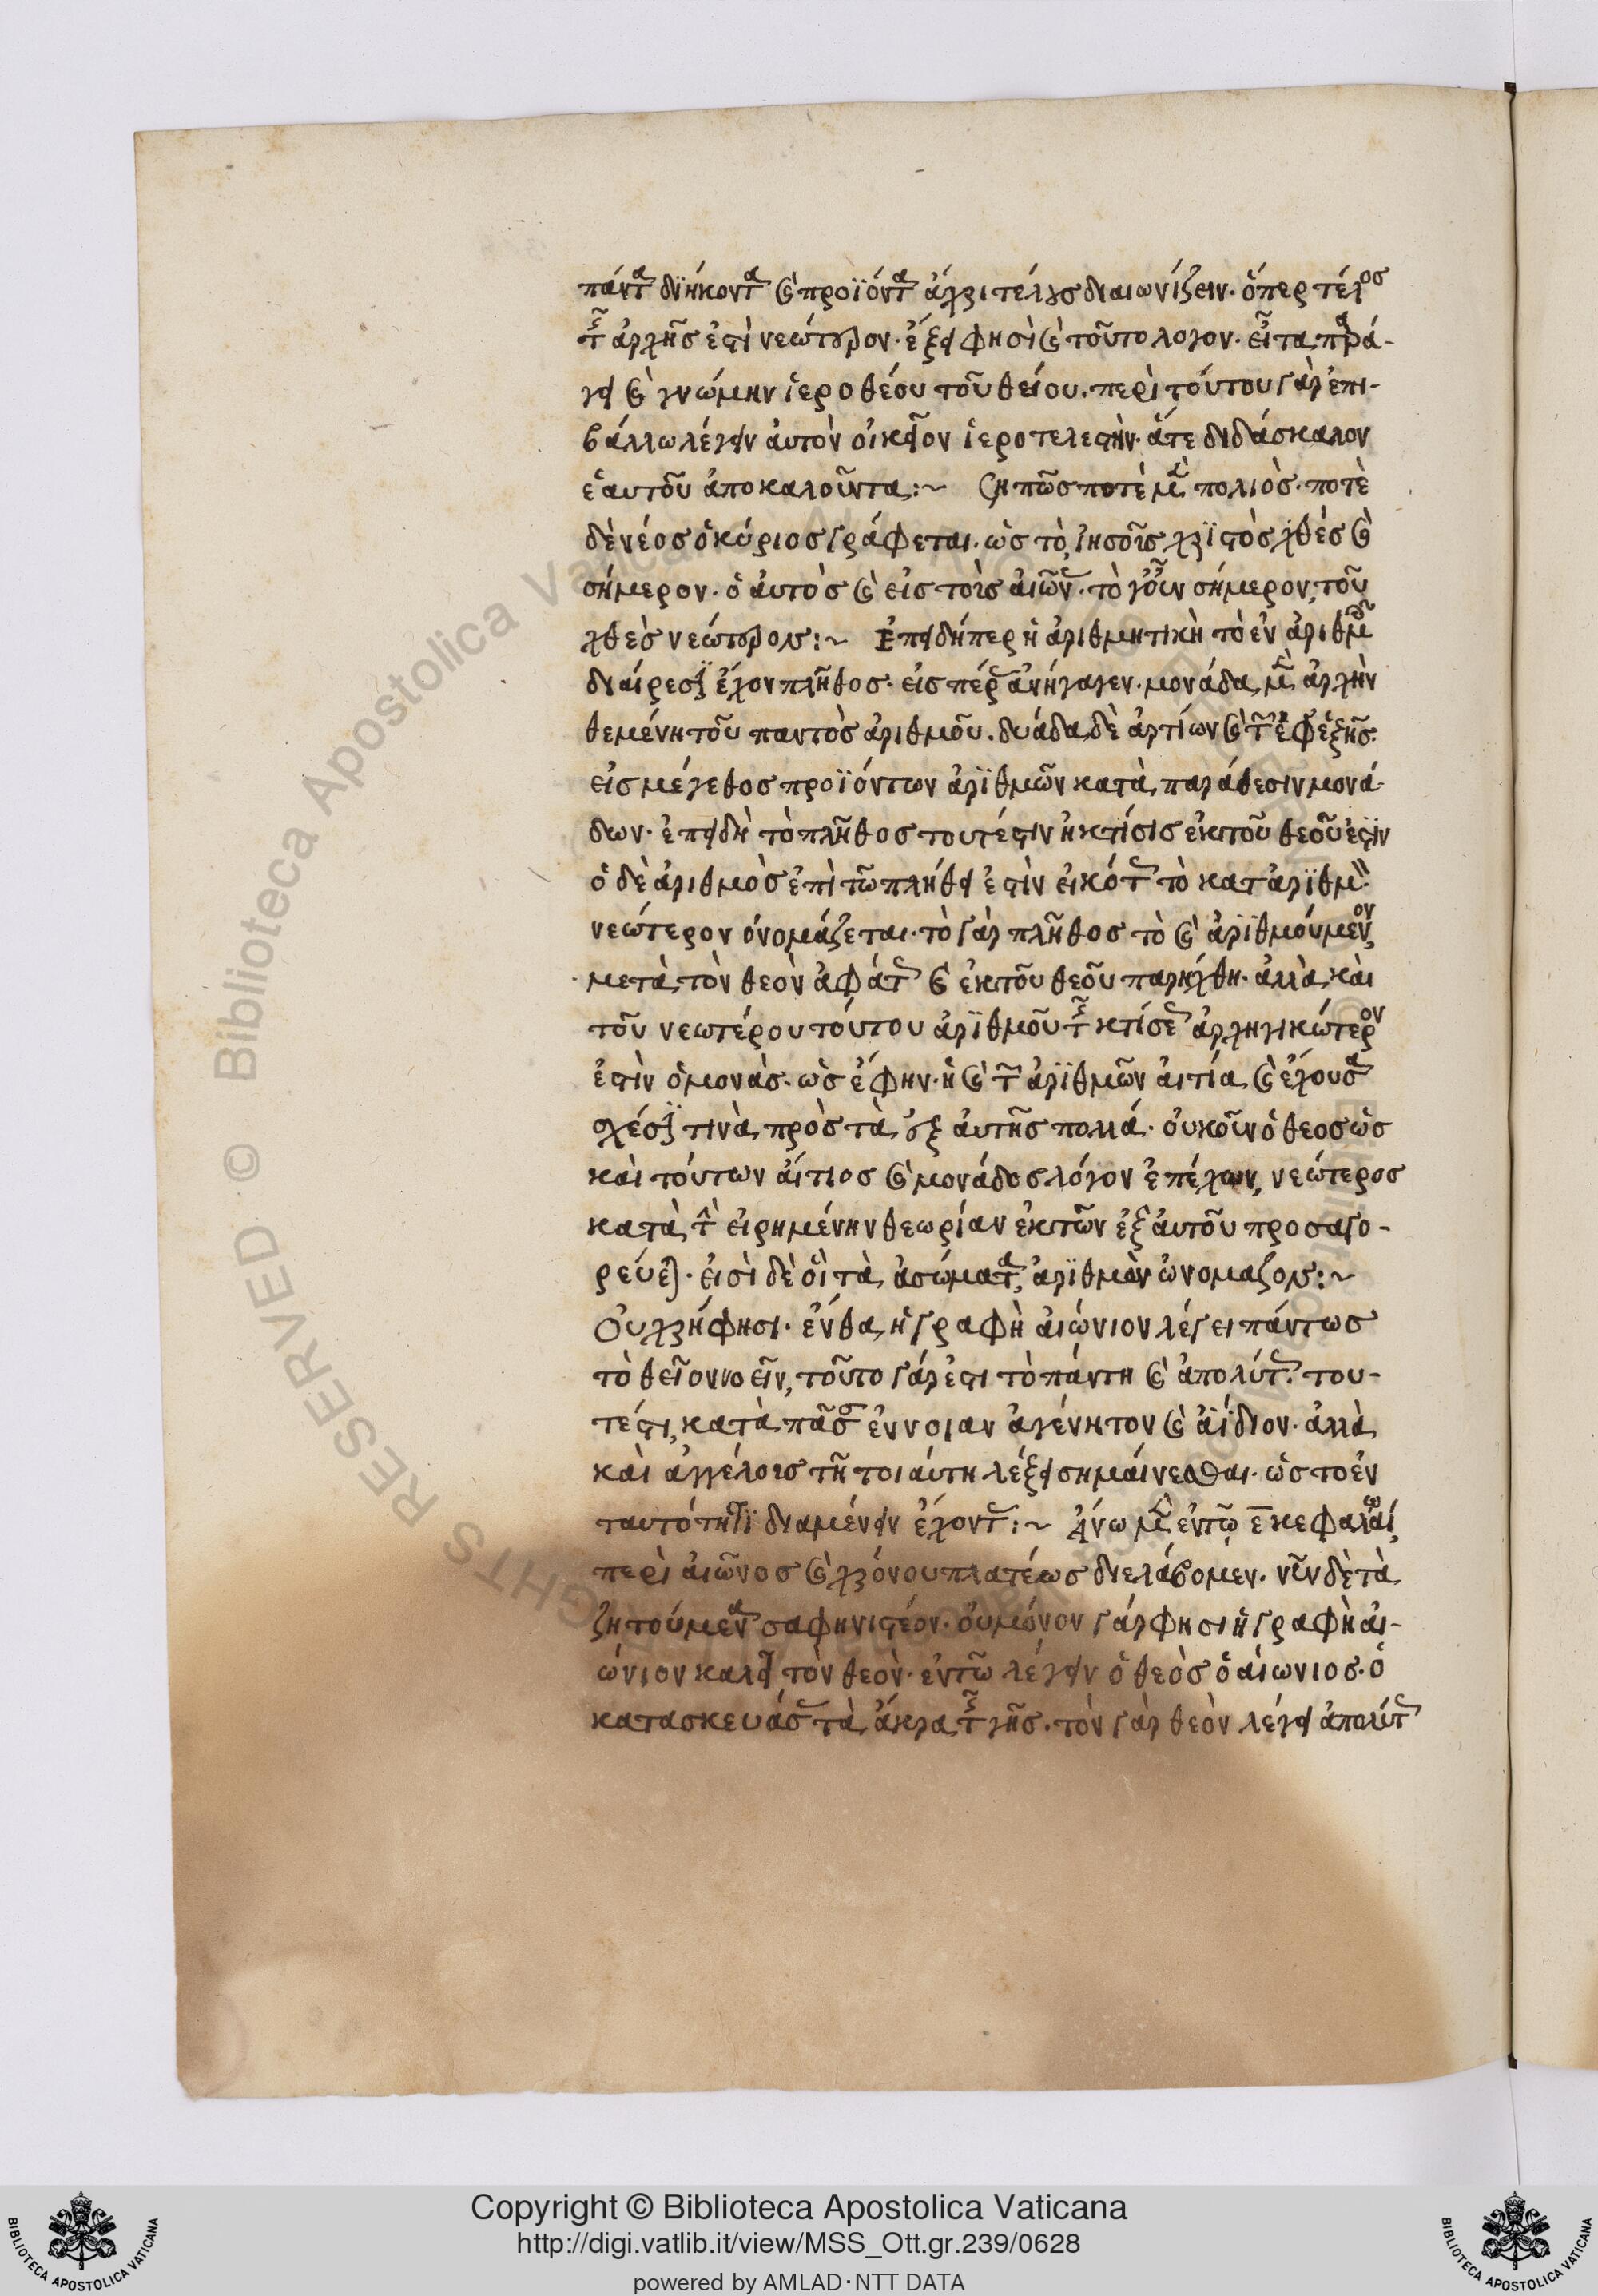 πάντα διήκοντα καὶ προϊόντα ἄχρι τέλους διαιωνίζειν· ὅπερ τέλος
τῆς ἀρχῆς ἐστὶ νεώτερον· ἕξει φησὶ καὶ τοῦτο λόγον· εἶτα παρά-
γει καὶ γνώμην ἱεροθέου τοῦ θείου. περὶ τούτου γὰρ ἐπι-
βάλλω λέγειν αὐτὸν οἰκεῖον ἱεροτελεστὴν· ἅτε διδάσκαλον
ἑαυτοῦ ἀποκαλοῦντα:~ πῶς ποτὲ μὲν πολιὸς· ποτὲ
δὲ νέος ὁ κύριος γράφεται· ὡς τὸ, ἰησοῦς χριστὸς χθές καὶ
σήμερον· ὁ αὐτὸς καὶ εἰς τοὺς αἰῶνας· τὸ γοῦν σήμερον, τοῦ
χθὲς νεώτερον:~ Ἐπειδήπερ ἡ ἀριθμητικὴ τὸ ἐν ἀριθμοῦ
διαιρέσει ἔχον πλῆθος· εἰς πέρας ἀνήγαγεν· μονάδα μὲν ἀρχὴν
θεμένη τοῦ παντὸς ἀριθμοῦ. δυάδα δὲ ἀρτίων καὶ τῶν ἐφεξῆς·
εἰς μέγεθος προϊόντων ἀριθμῶν κατὰ παράθεσιν μονά-
δων· ἐπειδὴ τὸ πλῆθος τουτέστιν ἡ κτίσις ἐκ τοῦ θεοῦ ἐστιν
ὁ δὲ ἀριθμὸς ἐπὶ τῶ πλήθει ἐστὶν εἰκότως τὸ κατ ἀριθμὸν
νεώτερον ὀνομάζεται· τὸ γὰρ πλῆθος τὸ καὶ ἀριθμούμενον
μετὰ τὸν θεὸν ἀφάτως καὶ ἐκ τοῦ θεοῦ παρήχθη· ἀλλὰ καὶ
τοῦ νεωτέρου τούτου ἀριθμοῦ τῆς κτίσεως ἀρχηγικώτερον
ἐστὶν ὁ μονὰς· ὡς ἔφην· ἡ καὶ τῶν ἀριθμῶν αἰτία καὶ ἔχουσα
σχέσιν τινὰ πρὸς τὰ ἐξ αὐτῆς πολλά· οὐκοῦν ὁ θεος ὡς
καὶ τούτων αἴτιος καὶ μονάδος λόγον ἐπέχων, νεώτερος
κατὰ τὴν εἰρημένην θεωρίαν ἐκ τῶν ἐξ αὐτοῦ προσαγο-
ρεύεται· εἰσὶ δὲ οἳ τὰ ἀσώματα, ἀριθμὸν ὠνομαζον:~
Οὐ χρή φησι· ἔνθα ἡ γραφὴ αἰώνιον λέγει πάντως
τὸ θεῖον νοεῖν, τοῦτο γάρ ἐστι τὸ πάντη καὶ ἀπολύτως· του-
τέστι, κατὰ πᾶσαν ἔννοιαν ἀγένητον καὶ ἀΐδιον· ἀλλὰ
καὶ ἀγγέλους τῆ τοιαύτη λέξει σημαίνεσθαι· ὡς το ἐν
ταυτότητι διαμένειν ἔχοντας:~ Ἄνω μὲν ἐν τῷ ε κεφαλαίω
περὶ αἰῶνος καὶ χρόνου πλατέως διελάβομεν· νῦν δὲ τὰ
ζητούμενα σαφηνιστέον· οὐ μόνον γάρ φησι ἡ γραφὴ αἰ-
ώνιον καλεῖ τὸν θεὸν· ἐν τῶ λέγειν ὁ θεὸς ὁ αἰωνιος· ὁ
κατασκευάσας τὰ ἄκρα τῆς γῆς· τὸν γὰρ θεὸν λέγει ἀπολύτως